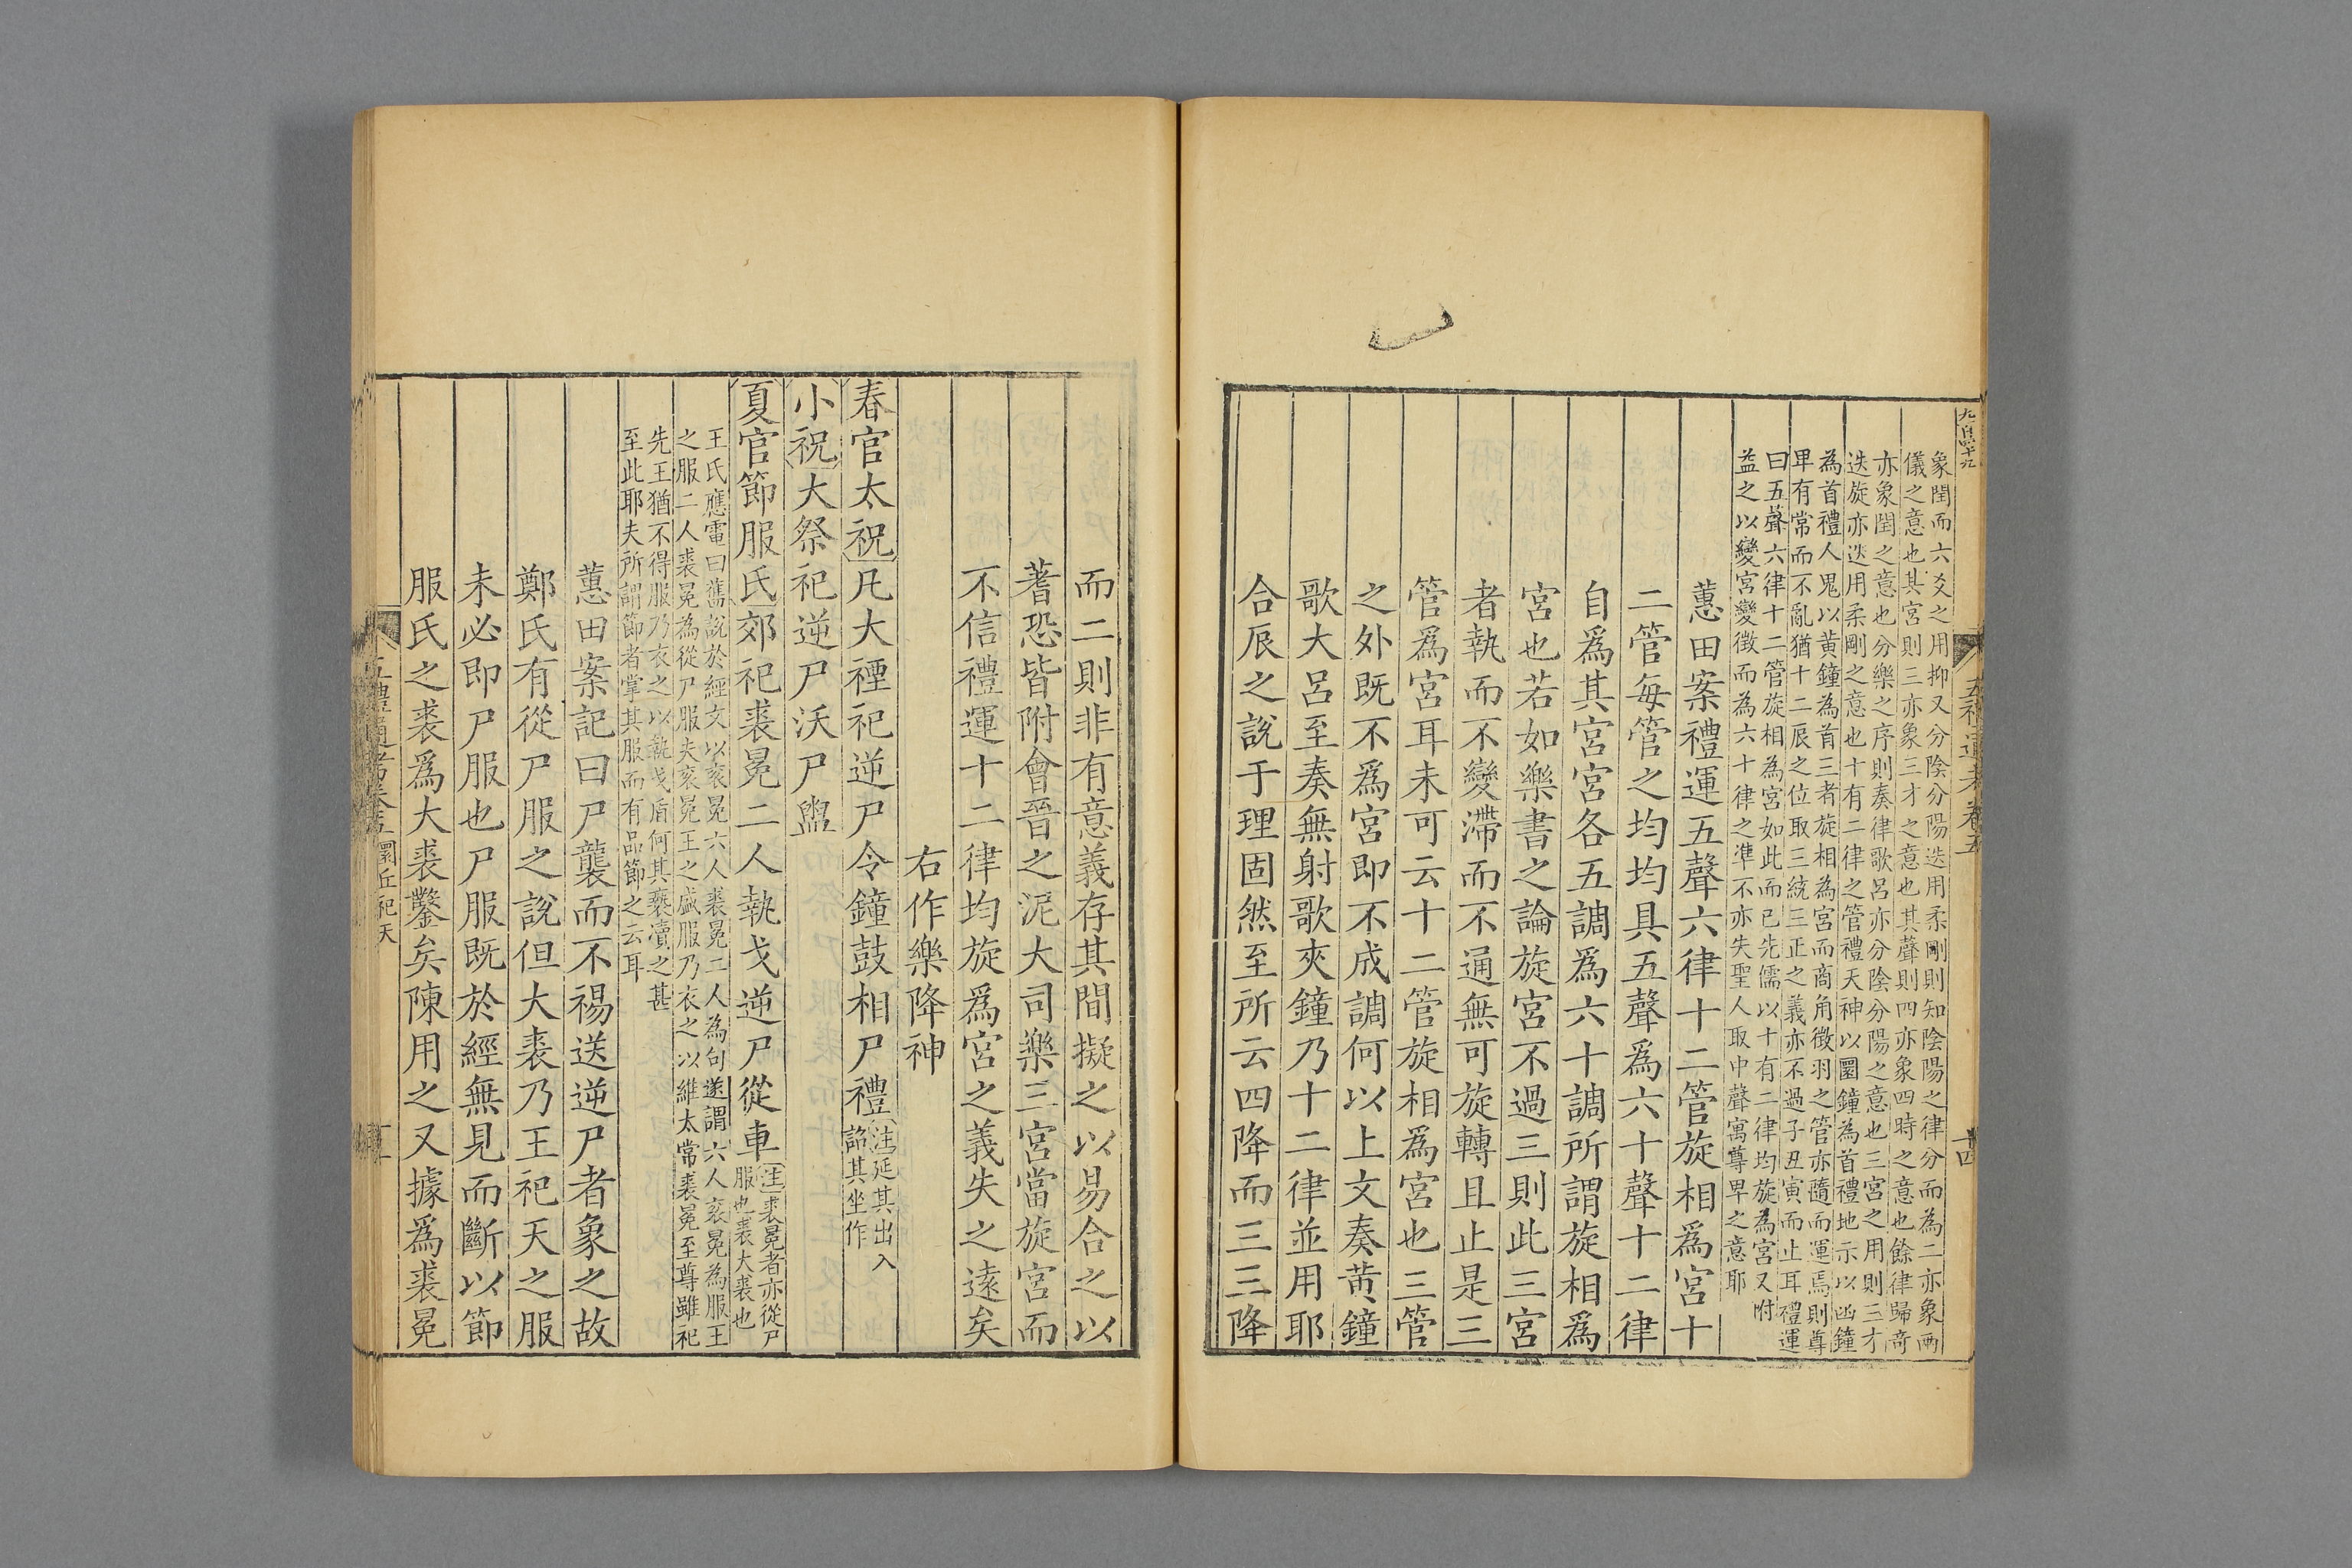 九百四十九
五禮通考卷五
十四
象閏而六爻之用抑又分陰分陽迭用柔剛則知陰陽之律分而為二亦象兩
儀之意也其宮則三亦象三才之意也其聲則四亦象四時之意也餘律歸奇
亦象閏之意也分樂之序則奏律歌呂亦分陰分陽之意也三宮之用則三才
迭旋亦迭用柔剛之意也十有二律之管禮天神以圜鐘為首禮地示以函鐘
為首禮人鬼以黄鐘為首三者旋相為宮而商角徵羽之管亦隨而運焉則尊
卑有常而不亂猶十二辰之位取三統三正之義亦不過子丑寅而止耳禮運
曰五聲六律十二管旋相為宮如此而已先儒以十有二律均旋為宮又附
益之以變宮變徵而為六十律之準不亦失聖人取中聲寓尊卑之意耶
蕙田案禮運五聲六律十二管旋相爲宮十
二管每管之均均具五聲爲六十聲十二律
自爲其宮宮各五調爲六十調所謂旋相爲
宮也若如樂書之論旋宮不過三則此三宮
者執而不變滯而不通無可旋轉且止是三
管爲宮耳未可云十二管旋相爲宮也三管
之外既不爲宮即不成調何以上文奏黄鐘
歌大呂至奏無射歌夾鐘乃十二律並用耶
合辰之說于理固然至所云四降而三三降
而二則非有意義存其間擬之以易合之以
蓍恐皆附會晉之泥大司樂三宮當旋宮而
不信禮運十二律均旋爲宮之義失之遠矣
右作樂降神
春官太祝凡大禋祀逆尸令鐘鼓相尸禮注延其出入
詔其坐作
小祝大祭祀逆尸沃尸盥
夏官節服氏郊祀裘冕二人執戈逆尸從車注裘冕者亦從尸
服也裘大裘也
王氏應電曰舊說於經文以衮冕六人裘冕二人為句遂謂六人衮冕為服王
之服二人裘冕為從尸服夫衮冕王之盛服乃衣之以維太常裘冕至尊雖祀
先王猶不得服乃衣之以執戈盾何其褻瀆之甚
至此耶夫所謂節者掌其服而有品節之云耳
蕙田案記曰尸襲而不裼送逆尸者象之故
鄭氏有從尸服之說但大裘乃王祀天之服
未必即尸服也尸服既於經無見而斷以節
服氏之裘爲大裘鑿矣陳用之又據爲裘冕
五禮通考卷五 圜丘祀天